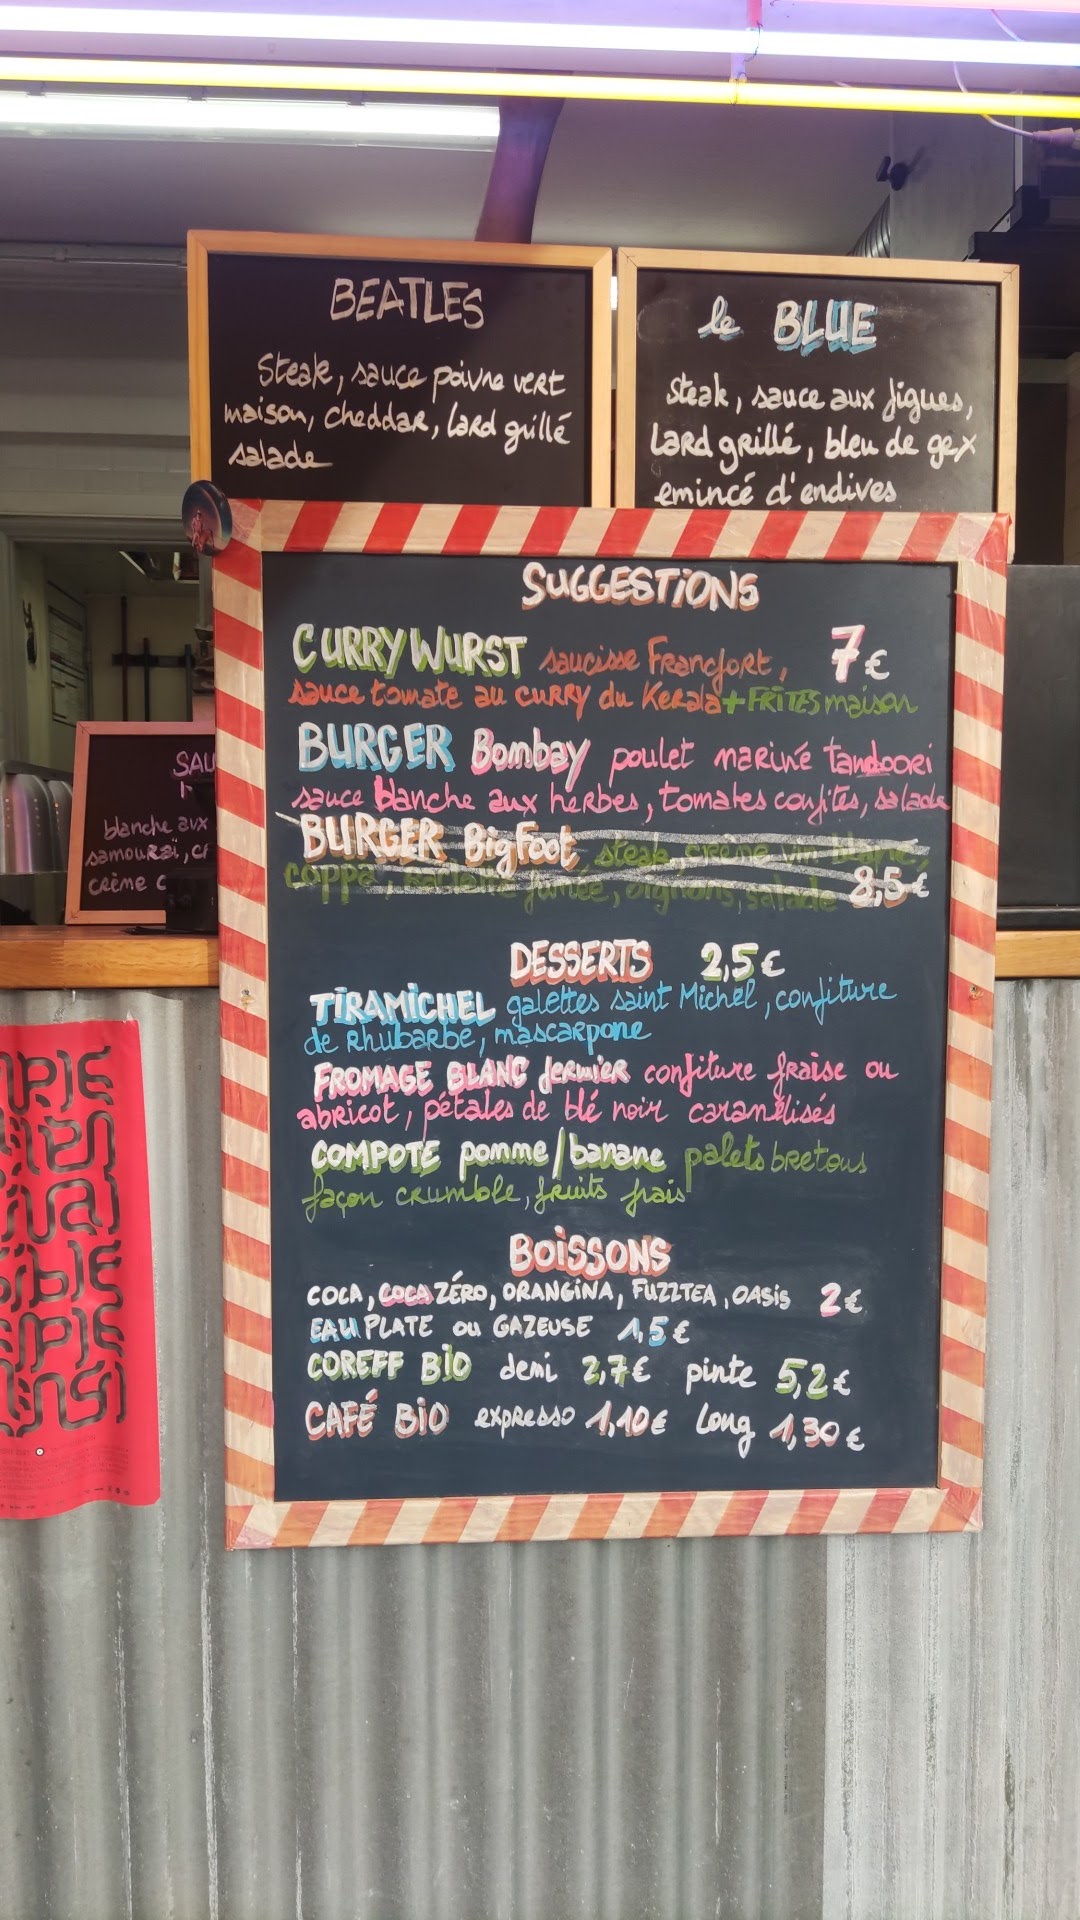 BEATLES
Steak, sauce poivre vert
maison, cheddar, lard grillé
salade
le BLUE
Steak, sauce aux figues,
lard grillé, bleu de gex
emincé d'endives
SUGGESTIONS
CURRY WURST saucisse Francfort, 7€
sauce tomate au curry du Kerala + FRITES maison
BURGER Bombay poulet mariné tandoori
sauce blanche aux herbes, tomates confites, salade
BURGER BigFoot steak, crème vin blanc,
coppa, fumée, oignons, salade 8,5€
DESSERTS 2,5€
TIRAMICHEL galettes saint Michel, confiture
de Rhubarbe, mascarpone
FROMAGE BLANC fermier confiture fraise ou
abricot, pétales de blé noir caramélisés
COMPOTE pomme/banane palets bretons
façon crumble, fruits frais
BOISSONS
COCA, COCA ZÉRO, ORANGINA, FUZZTEA, OASIS 2€
EAU PLATE ou GAZEUSE 1,5€
COREFF BIO demi 2,7€ pinte 5,2€
CAFÉ BIO expresso 1,10€ Long 1,30€
SAU
blanche aux
samouraï, CR
crème C